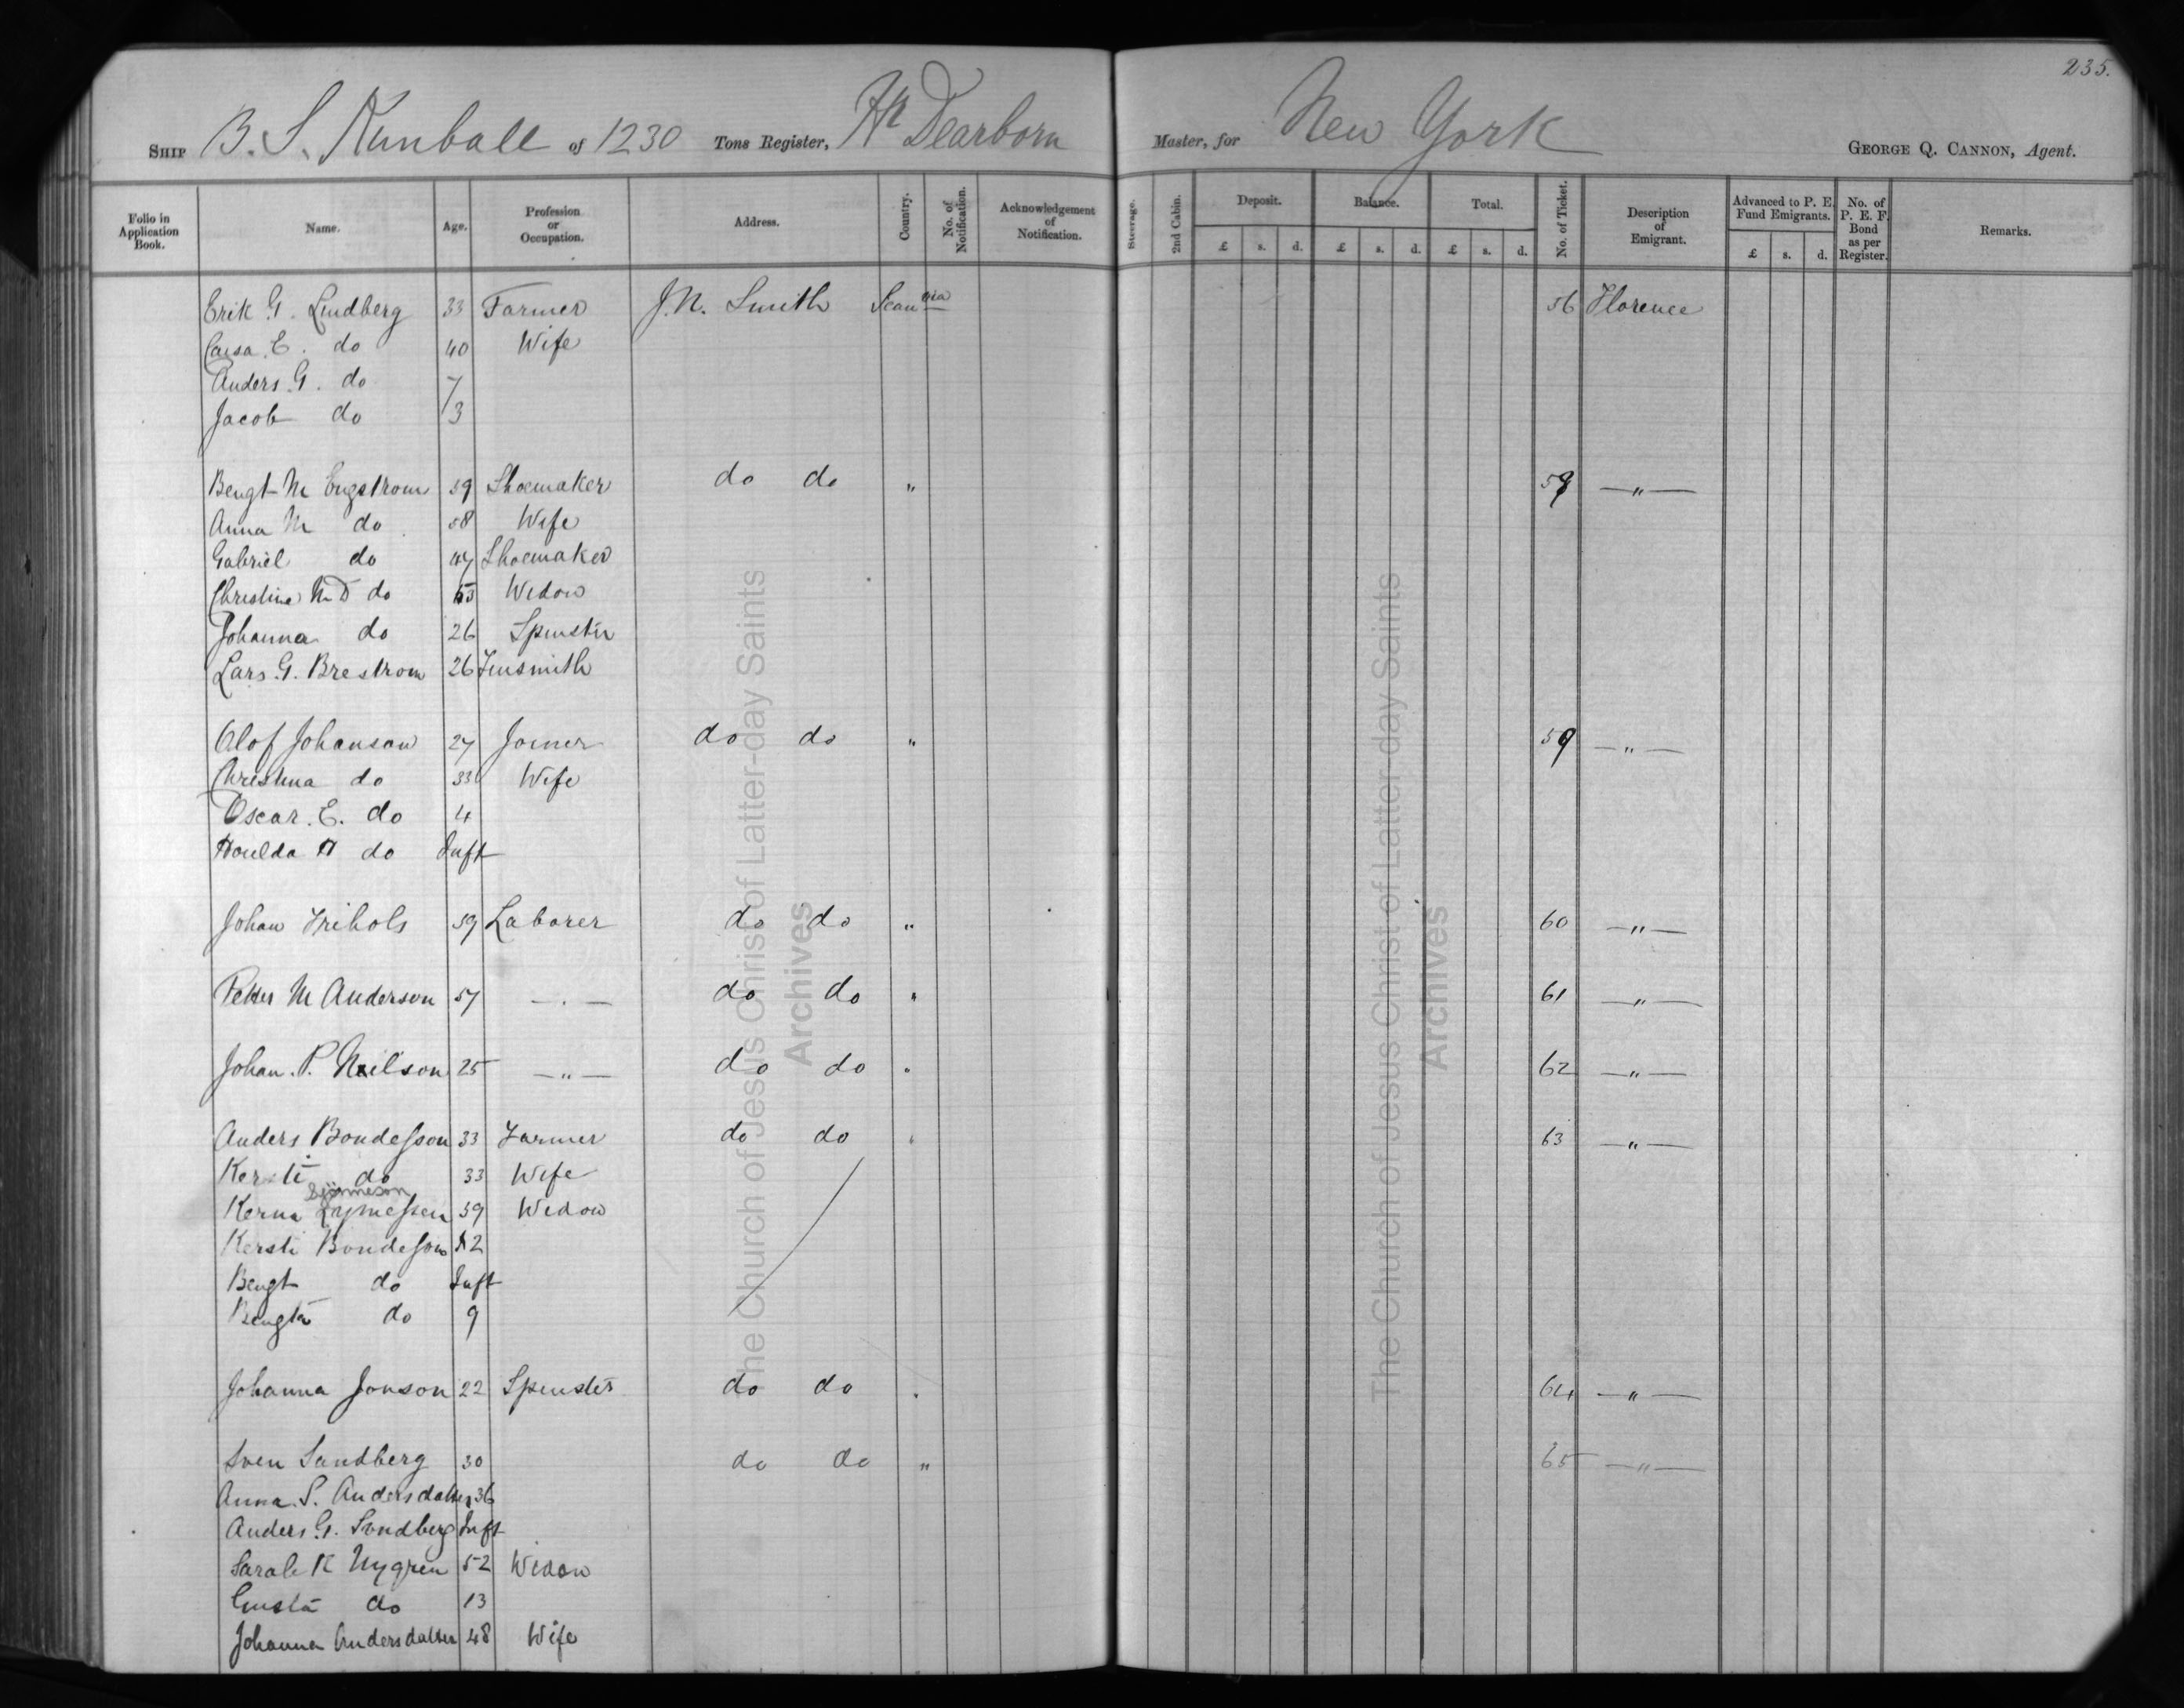 235.
SHIP B. S. Kimball of 1230 Tons Register, H Dearborn Master, for New York GEORGE Q. CANNON, Agent.
Folio in Application Book. Name. Age. Profession or Occupation. Address. Country. No. of Notification. Acknowledgement of Notification. Steerage. 2nd Cabin. Deposit. Balance. Total. No. of Ticket. Description of Emigrant. Advanced to P. E. Fund Emigrants. No. of P. E. F. Bond as per Register. Remarks.
£ s. d. £ s. d. £ s. d. £ s. d.
Erik G. Lindberg 33 Farmer J. N. Smith Scan nia 56 Florence
Caisa. E. do 40 Wife
Anders. G. do 7
Jacob do 3
Bengt M Engstrom 59 Shoemaker do do " —"—
Anna M do 58 Wife
Gabriel do Shoemaker
Christine M D do Widow
Johanna do 26 Spinster
Lars. G. Brestrom 26 Tinsmith
Olof Johanson 27 Joiner do do " 59 —"—
Christina do 33 Wife
Oscar. E. do 4
Houlda H do Inft
Johan Frihols 59 Laborer do do " 60 —"—
Petter M Anderson 57 — . — do do " 61 —"—
Johan. P. Neilson 25 —"— do do " 62 —"—
Anders Bondesson 33 Farmer do do " 63 —"—
Kersti do 33 Wife
Kerna 59 Widow
Kersti Bondeson 12
Bengt do Inft
Bengta do 9
Johanna Jonson 22 Spinster do do " 64 —"—
Sven Sandberg 30 do do " 65 —"—
Anna. S. Andersdatter 36
Anders G. Sandberg Inft
Sarah K Nygren 52 Widow
Gusta do 13
Johanna Andersdatter 48 Wife
The Church of Jesus Christ of Latter-day Saints
Archives
The Church of Jesus Christ of Latter-day Saints
Archives